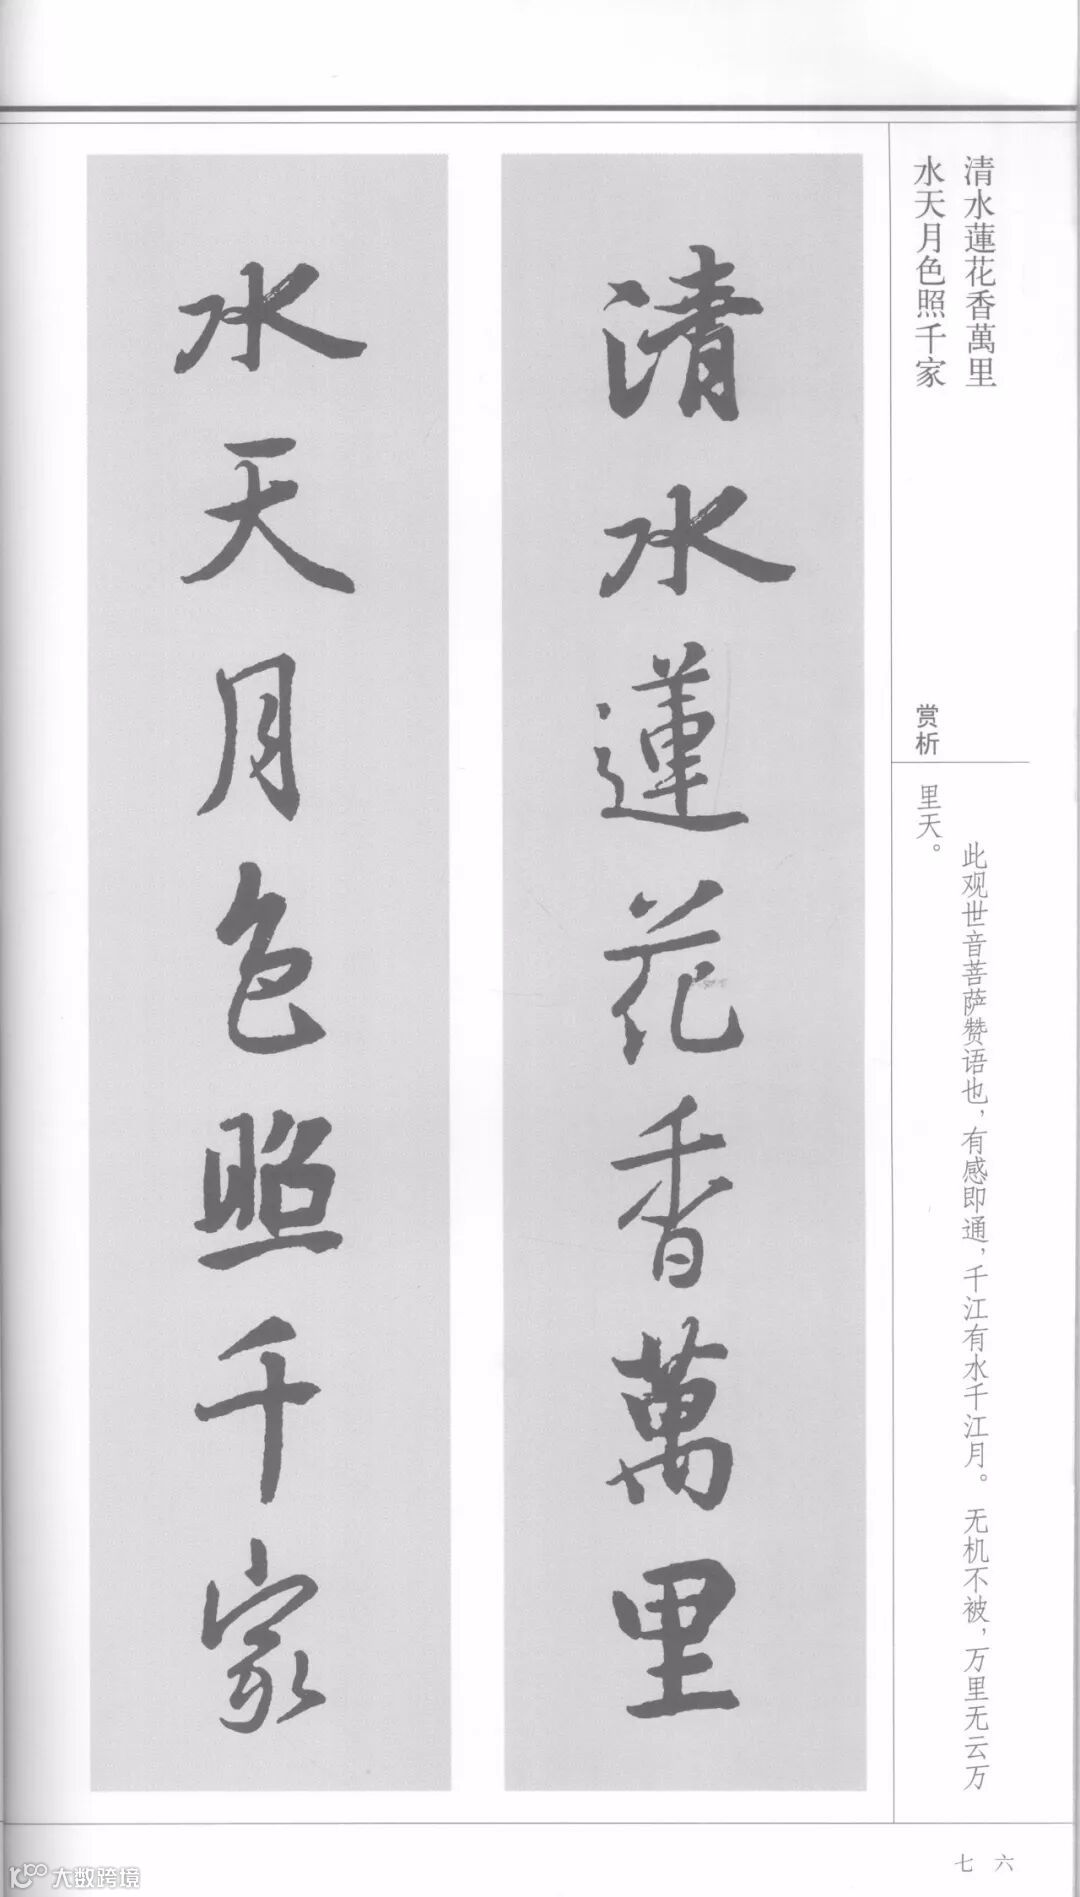 清水蓮花香萬里
水天月色照千家
赏析
此观世音菩萨赞语也，有感即通，千江有水千江月。无机不被，万里无云万
里天。
清水蓮花香萬里
水天月色照千家
七六
大数跨境